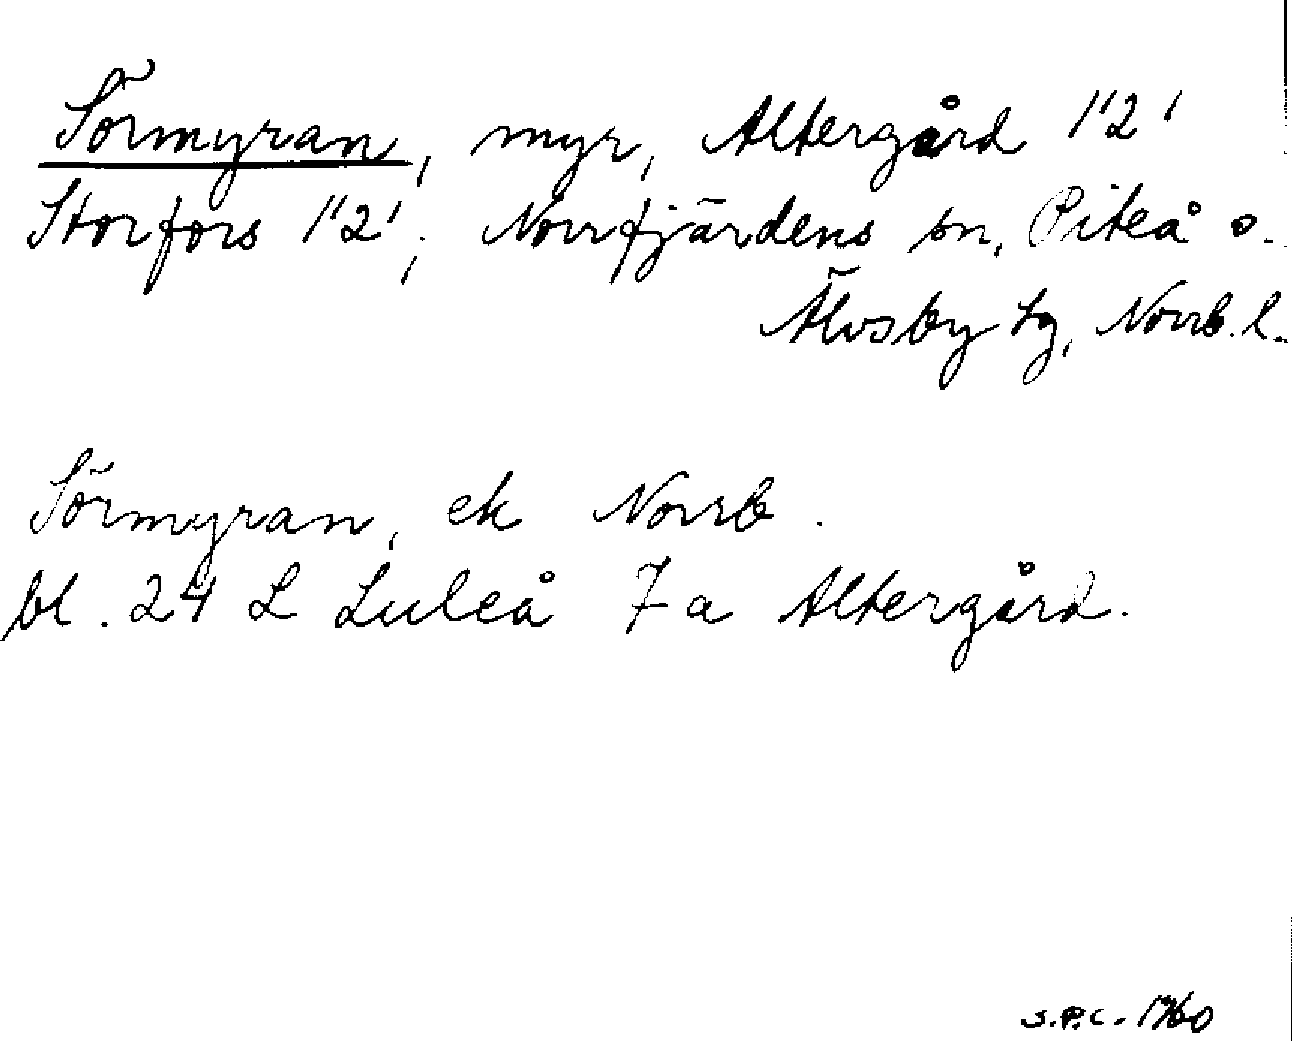 Sörmyran, myr, Altergård 1'2'
Storfors 1'2'; Norrfjärdens sn, Piteå o.
Älvsby tg, Norrb. l.
Sörmyran, ek Norrb.
bl. 24 L Luleå 7 a Altergård.
S.P.C. 1960